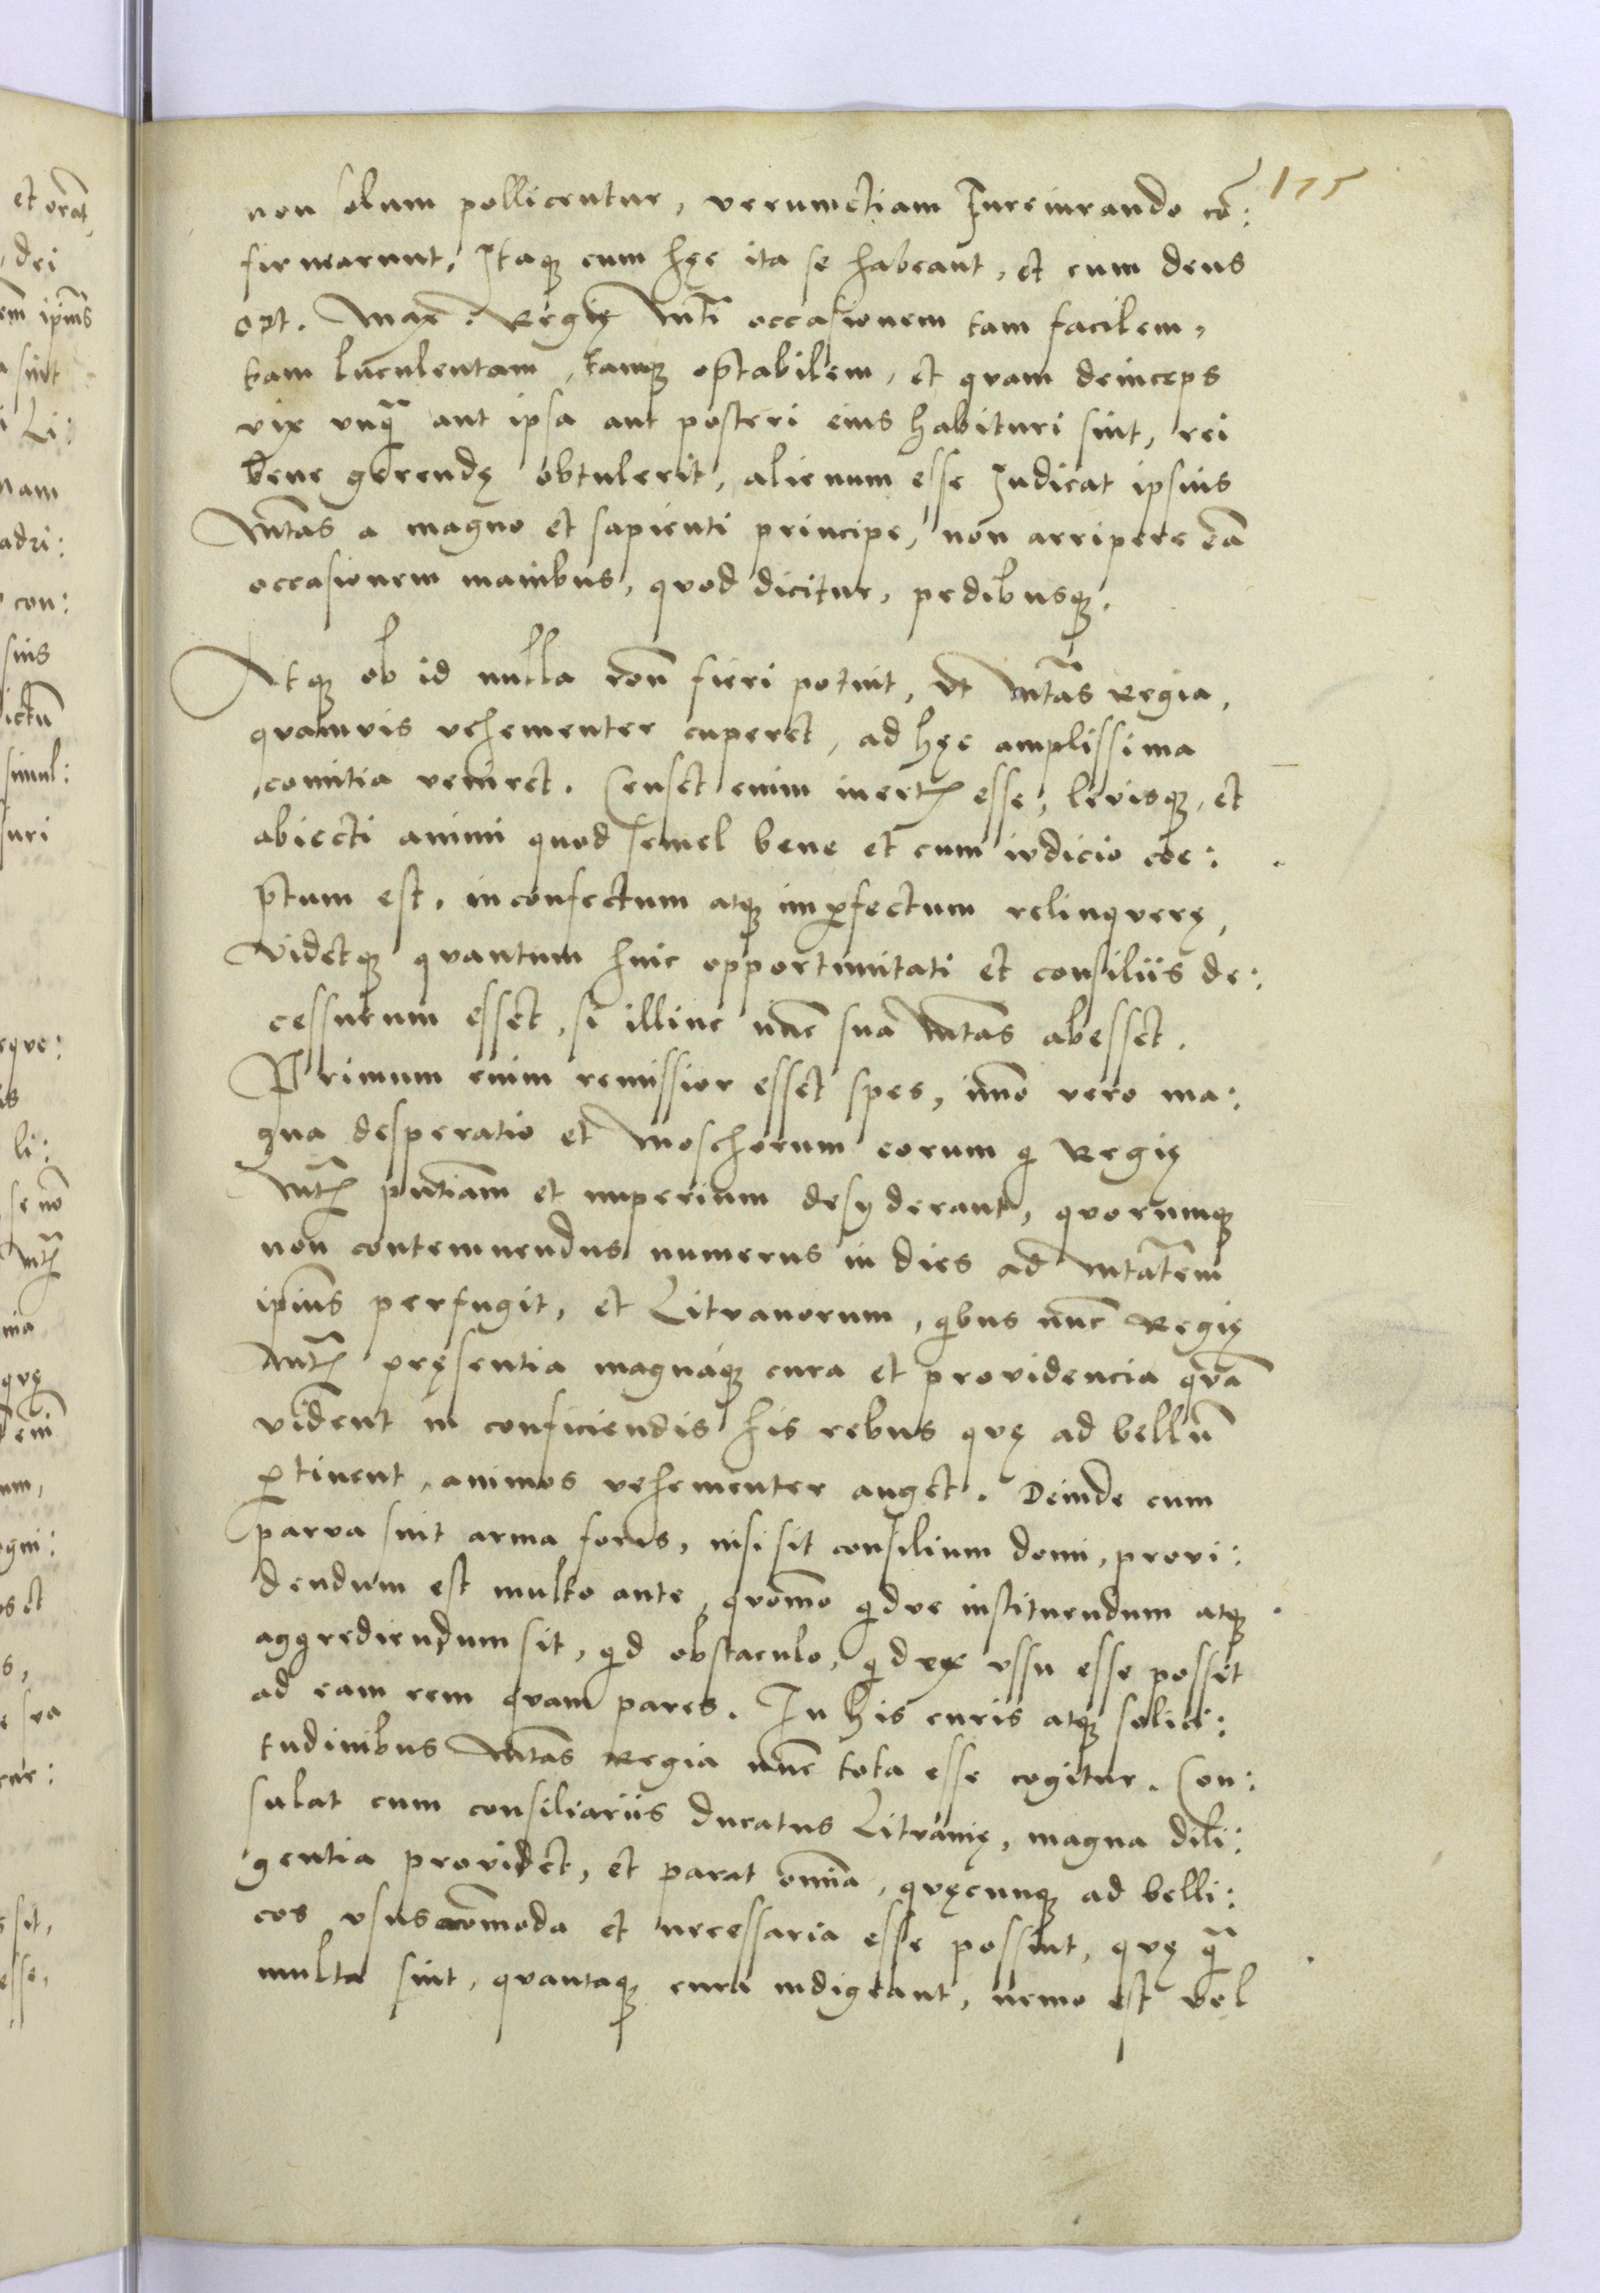 175
non solum pollicentur, verumetiam Iureiurando cō:
firmarunt. Itaqꝫ cum hęc ita se habeant, et cum deus
opt. Max: Regię Mti occasionem tam facilem,
tam luculentam, tamqꝫ optabilem, et quam deinceps
vix vnq̄ aut ipsa aut posteri eius habituri sint, rei
bene gerendę obtulerit, alienum esse Iudicat ipsius
Mtas a magno et sapienti principe, non arripere eā
occasionem manibus, quod dicitur, pedibusqꝫ.
Atqꝫ ob id nulla rōn fieri potuit, vt Mtas Regia,
quamvis vehementer cuperet, ad hęc amplissima
comitia veniret. Censet enim inertꝭ esse, levisqꝫ, et
abiecti animi quod semel bene et cum iudicio coe:
ptum est, inconfectum atqꝫ imꝑfectum relinquere,
Videtqꝫ quantum huic opportunitati et consiliis de:
cessurum esset, si illinc nūc sua Mtas abesset.
Primum enim remissior esset spes, immo vero ma:
gna desperatio et Moschorum eorum qi Regię
Mtꝭ pn̄tiam et imperium desyderant, quorumqꝫ
non contemnendus numerus in dies ad Mtatem
ipius perfugit, et Lituanorum, qibus nūc Regię
Mtꝭ pręsentia magnáqꝫ cura et providencia quā
vident in conficiendis his rebus quę ad bellū
ꝑtinent, animos vehementer auget. Deinde cum
parva sint arma foris, nisi sit consilium domi, provi:
dendum est multo ante, quōmo qidve instituendum atqꝫ
aggrediendum sit, qid obstaculo, qid vssu esse possit
ad eam rem quam pares. In his curis atqꝫ solici:
tudinibus Mtas Regia nūc tota esse cogitur. Con:
sulat cum consiliariis ducatus Lituanię, magna dili:
gentia providet, et parat omīa, quęcunqꝫ ad belli:
cos vsus cōmoda et necessaria esse possint, quę q̄
multa sint, quantaqꝫ cura indigeant, nemo est vel